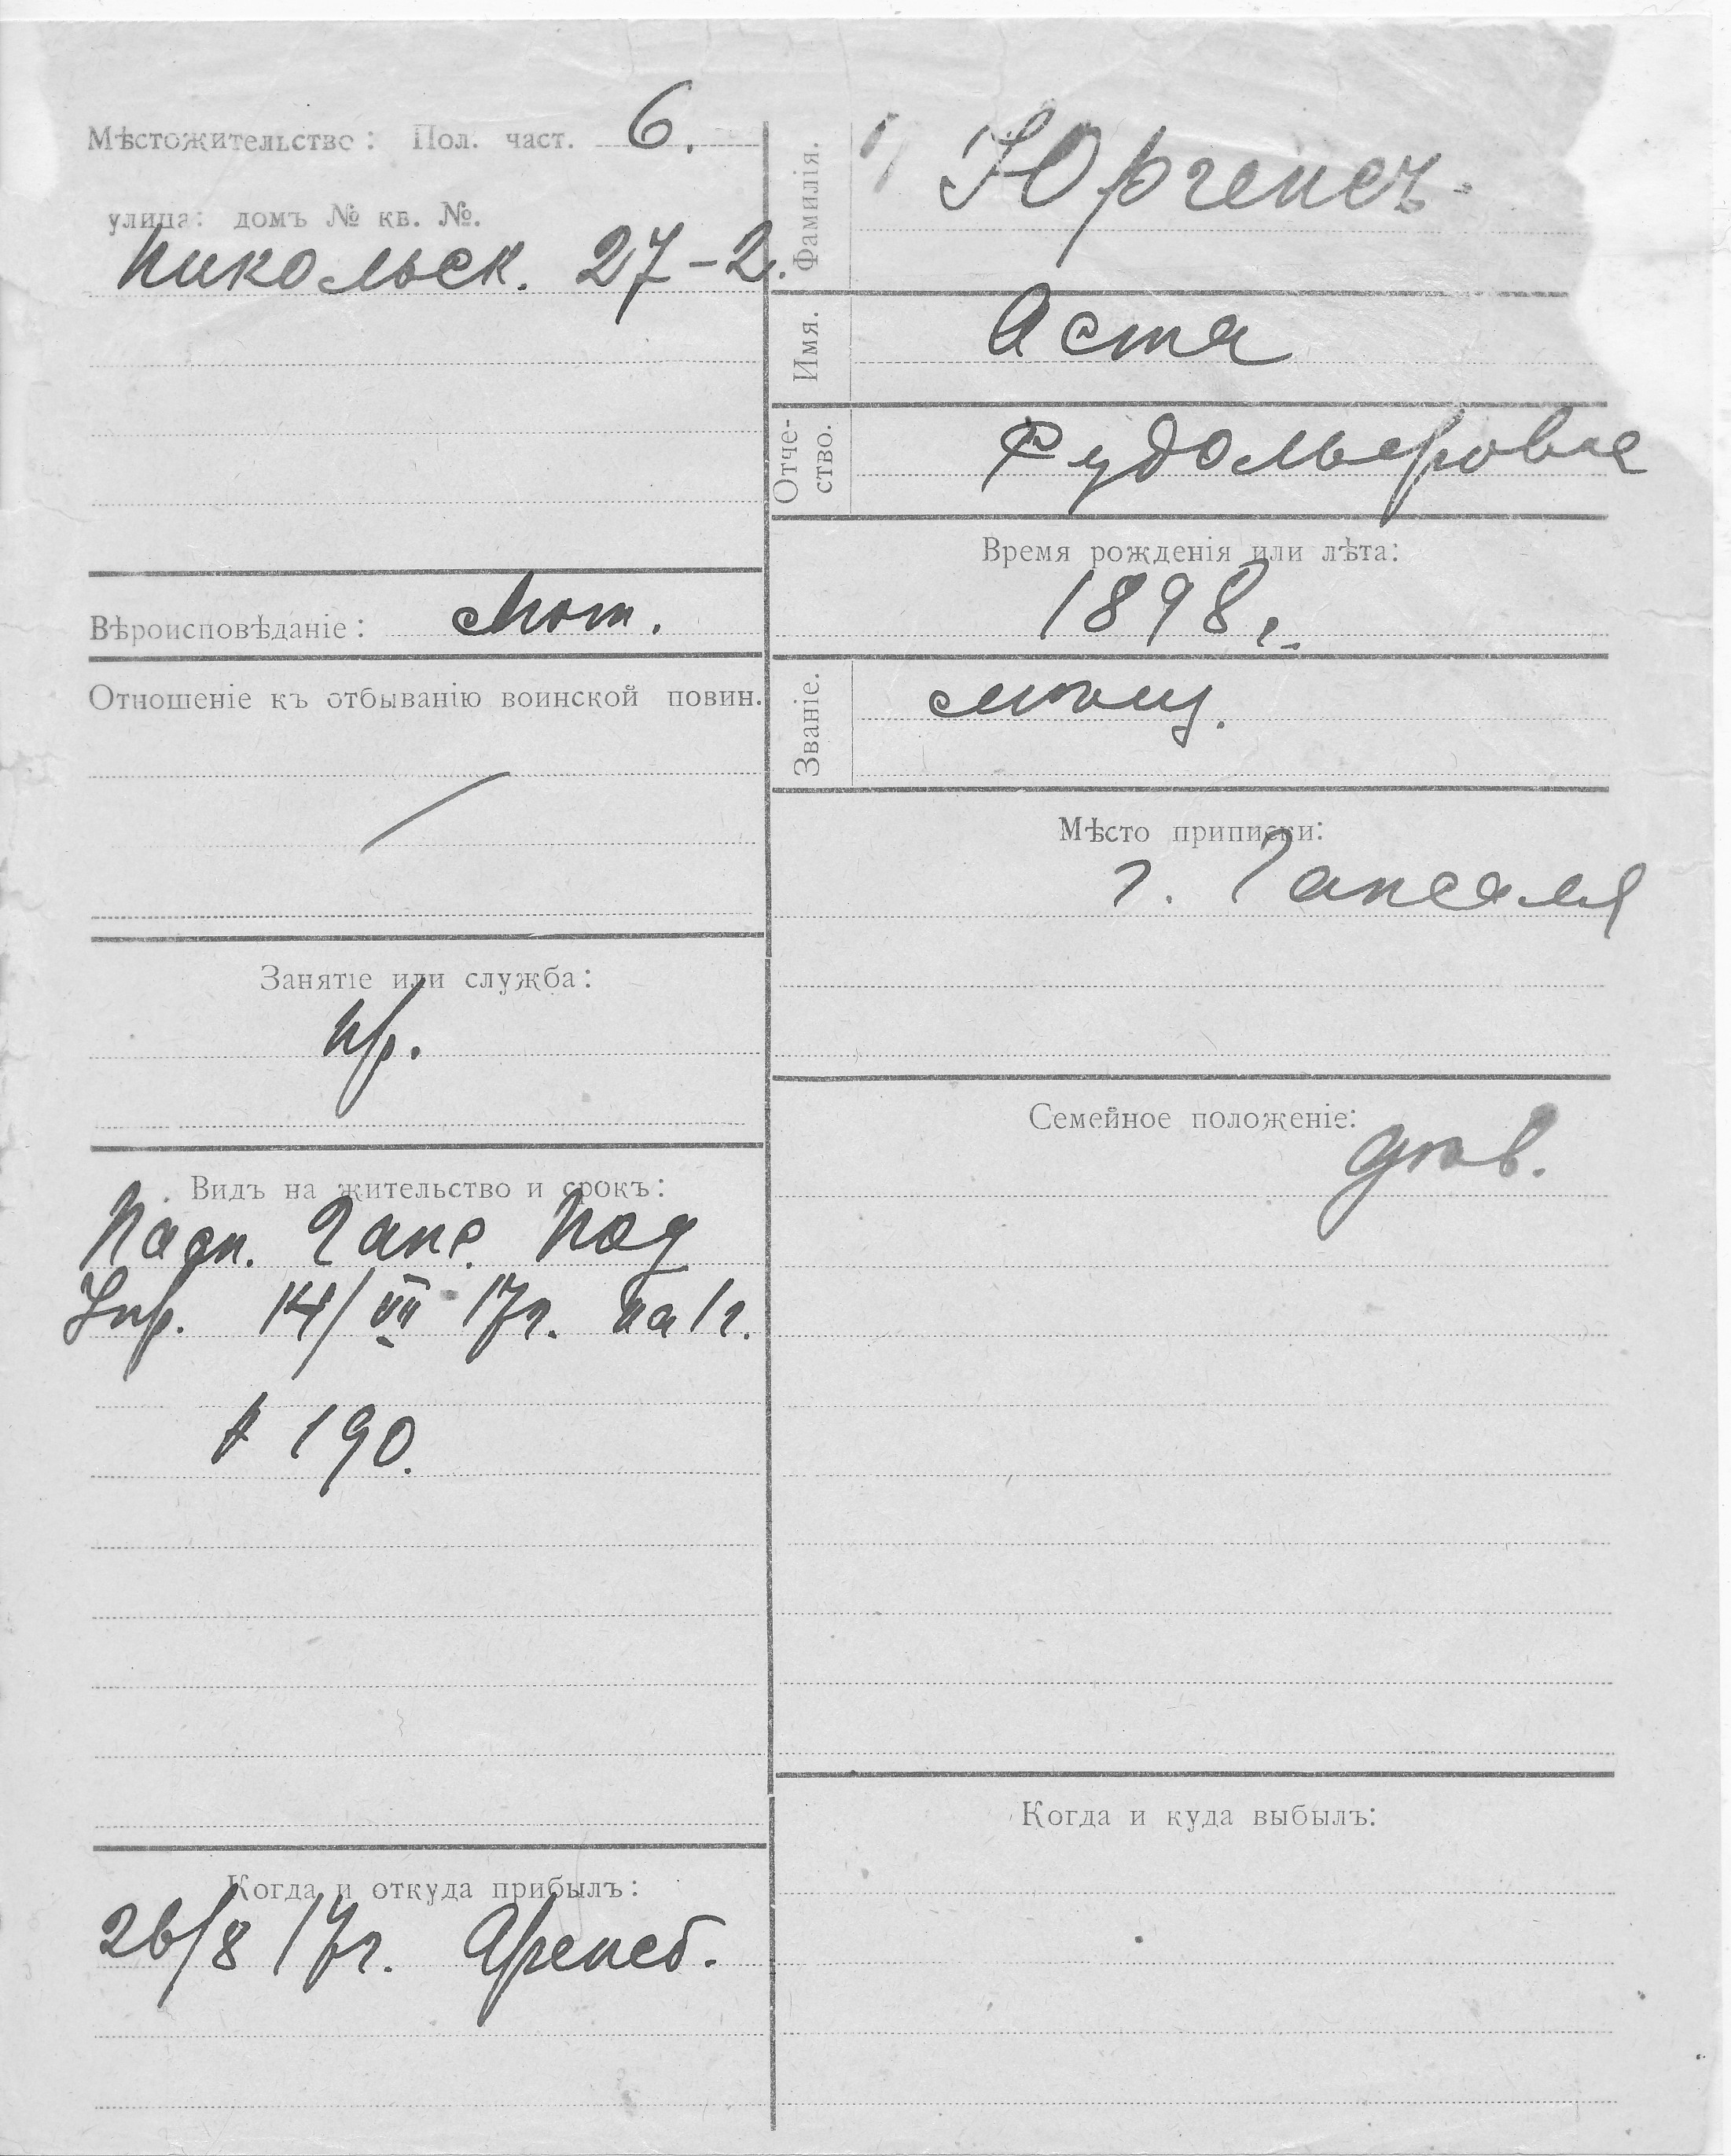 Мѣстожительство: Пол. част. 6.
улица: домъ № кв. №.
Никольск. 27-2.
Вѣроисповѣданіе: Лют.
Отношеніе къ отбыванію воинской повин.
Занятіе или служба:
пр.
Видъ на жительство и срокъ:
Пасп. Гапс. Под
Упр. 14/VII 17г. на 1г.
№ 190.
Когда и откуда прибылъ:
26/8 17г. Аренсб.
Фамилія. Юргенсъ
Имя. Аста
Отче-
ство. Рудольфовна
Время рожденія или лѣта:
1898 г.
Званіе. мѣщ.
Мѣсто приписки:
г. Гапсаля
Семейное положеніе:
дѣв.
Когда и куда выбылъ: